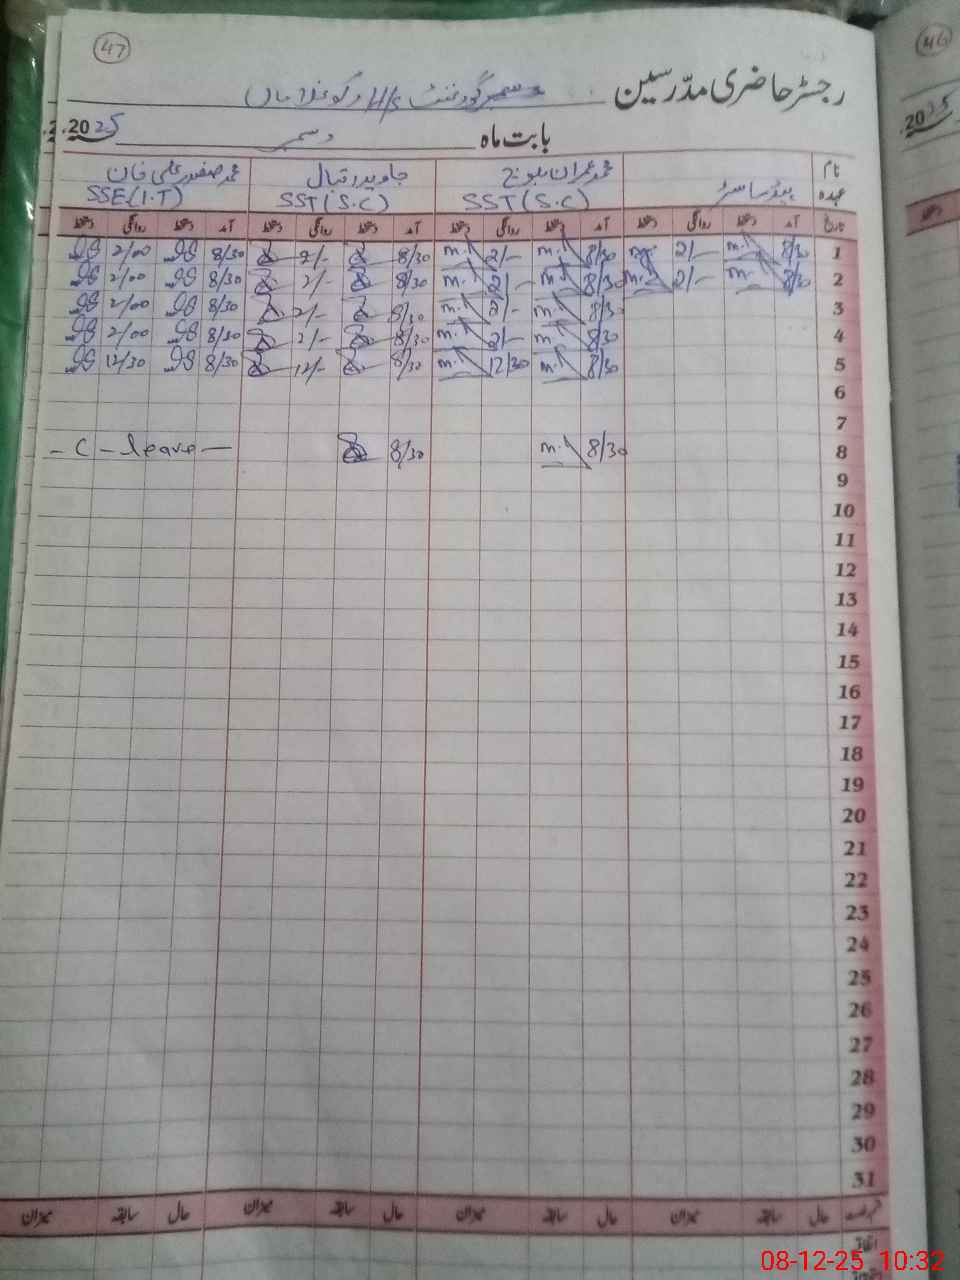 47
46
رجسٹر حاضری مدرّسین گورنمنٹ H/S
بابت ماہ دسمبر 2025
نام ہیڈ ماسٹر محمد عمران بلوچ جاوید اقبال محمد صفدر علی خان
عہدہ SST(S.C) SST(S.C) SSE(I.T)
تاریخ آمد دستخط روانگی دستخط آمد دستخط روانگی دستخط آمد دستخط روانگی دستخط آمد دستخط روانگی دستخط
1 8/30 2/- 8/30 2/- 8/30 2/- 8/30 2/00
2 8/30 2/- 8/30 2/- 8/30 2/- 8/30 2/00
3 8/30 2/- 8/30 2/- 8/30 2/00
4 8/30 2/- 8/30 2/- 8/30 2/00
5 8/30 12/30 8/30 12/- 8/30 12/30
6
7
8 8/30 8/30 - C - leave -
9
10
11
12
13
14
15
16
17
18
19
20
21
22
23
24
25
26
27
28
29
30
31
حال سابقہ میزان حال سابقہ میزان حال سابقہ میزان حال سابقہ میزان
08-12-25 10:32